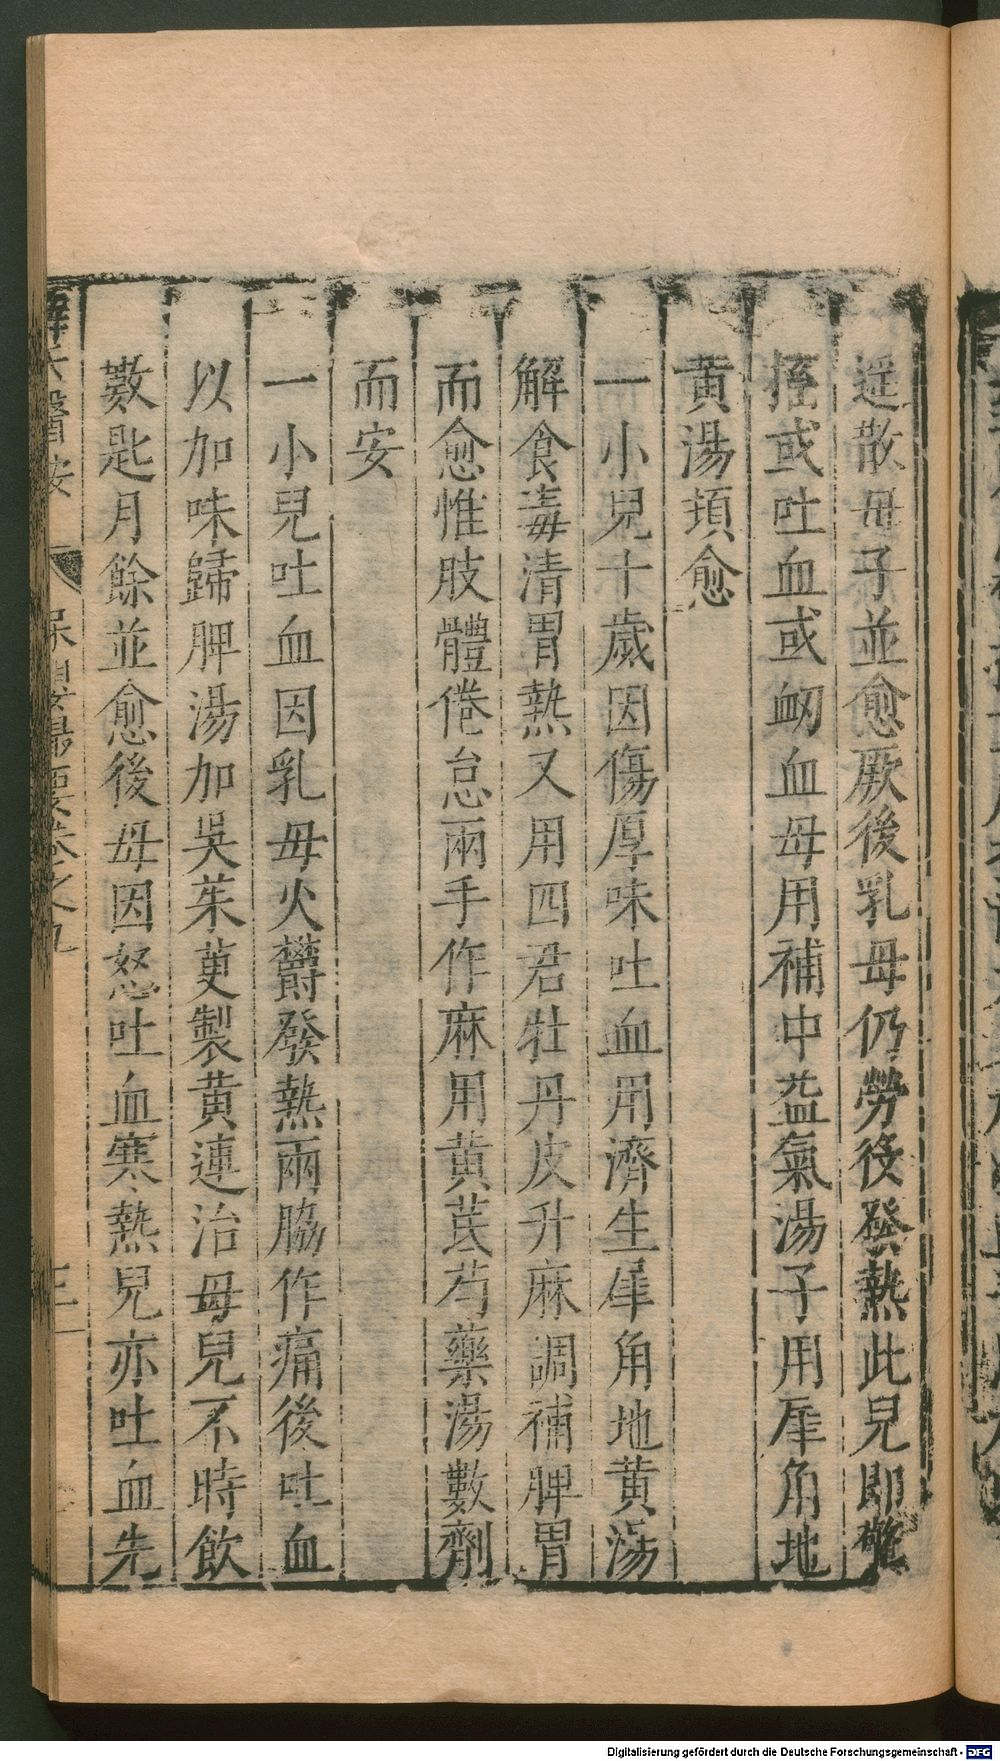 遥散母子並愈厥後乳母仍勞役發熱此兒即驚
搐或吐血或衂血母用補中益氣湯子用犀角地
黄湯頓愈
一小兒十歲因傷厚味吐血用濟生犀角地黄湯
解食毒清胃熱又用四君牡丹皮升麻調補脾胃
而愈惟肢體倦怠兩手作麻用黄芪芍藥湯數劑
而安
一小兒吐血因乳母火欝發熱兩脇作痛後吐血
以加味歸脾湯加吳茱萸製黄連治母兒不時飲
數匙月餘並愈後母因怒吐血寒熱兒亦吐血先
醫按 保嬰歸要卷之九
Digitalisierung gefördert durch die Deutsche Forschungsgemeinschaft - DFG